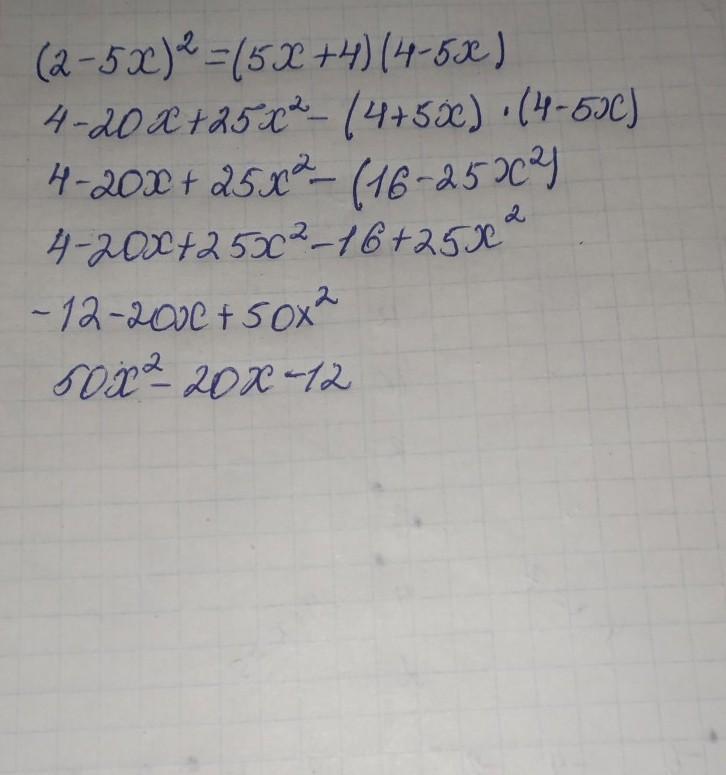 (2-5x)²=(5x+4)(4-5x)
4-20x+25x²-(4+5x)·(4-5x)
4-20x+25x²-(16-25x²)
4-20x+25x²-16+25x²
-12-20x+50x²
50x²-20x-12